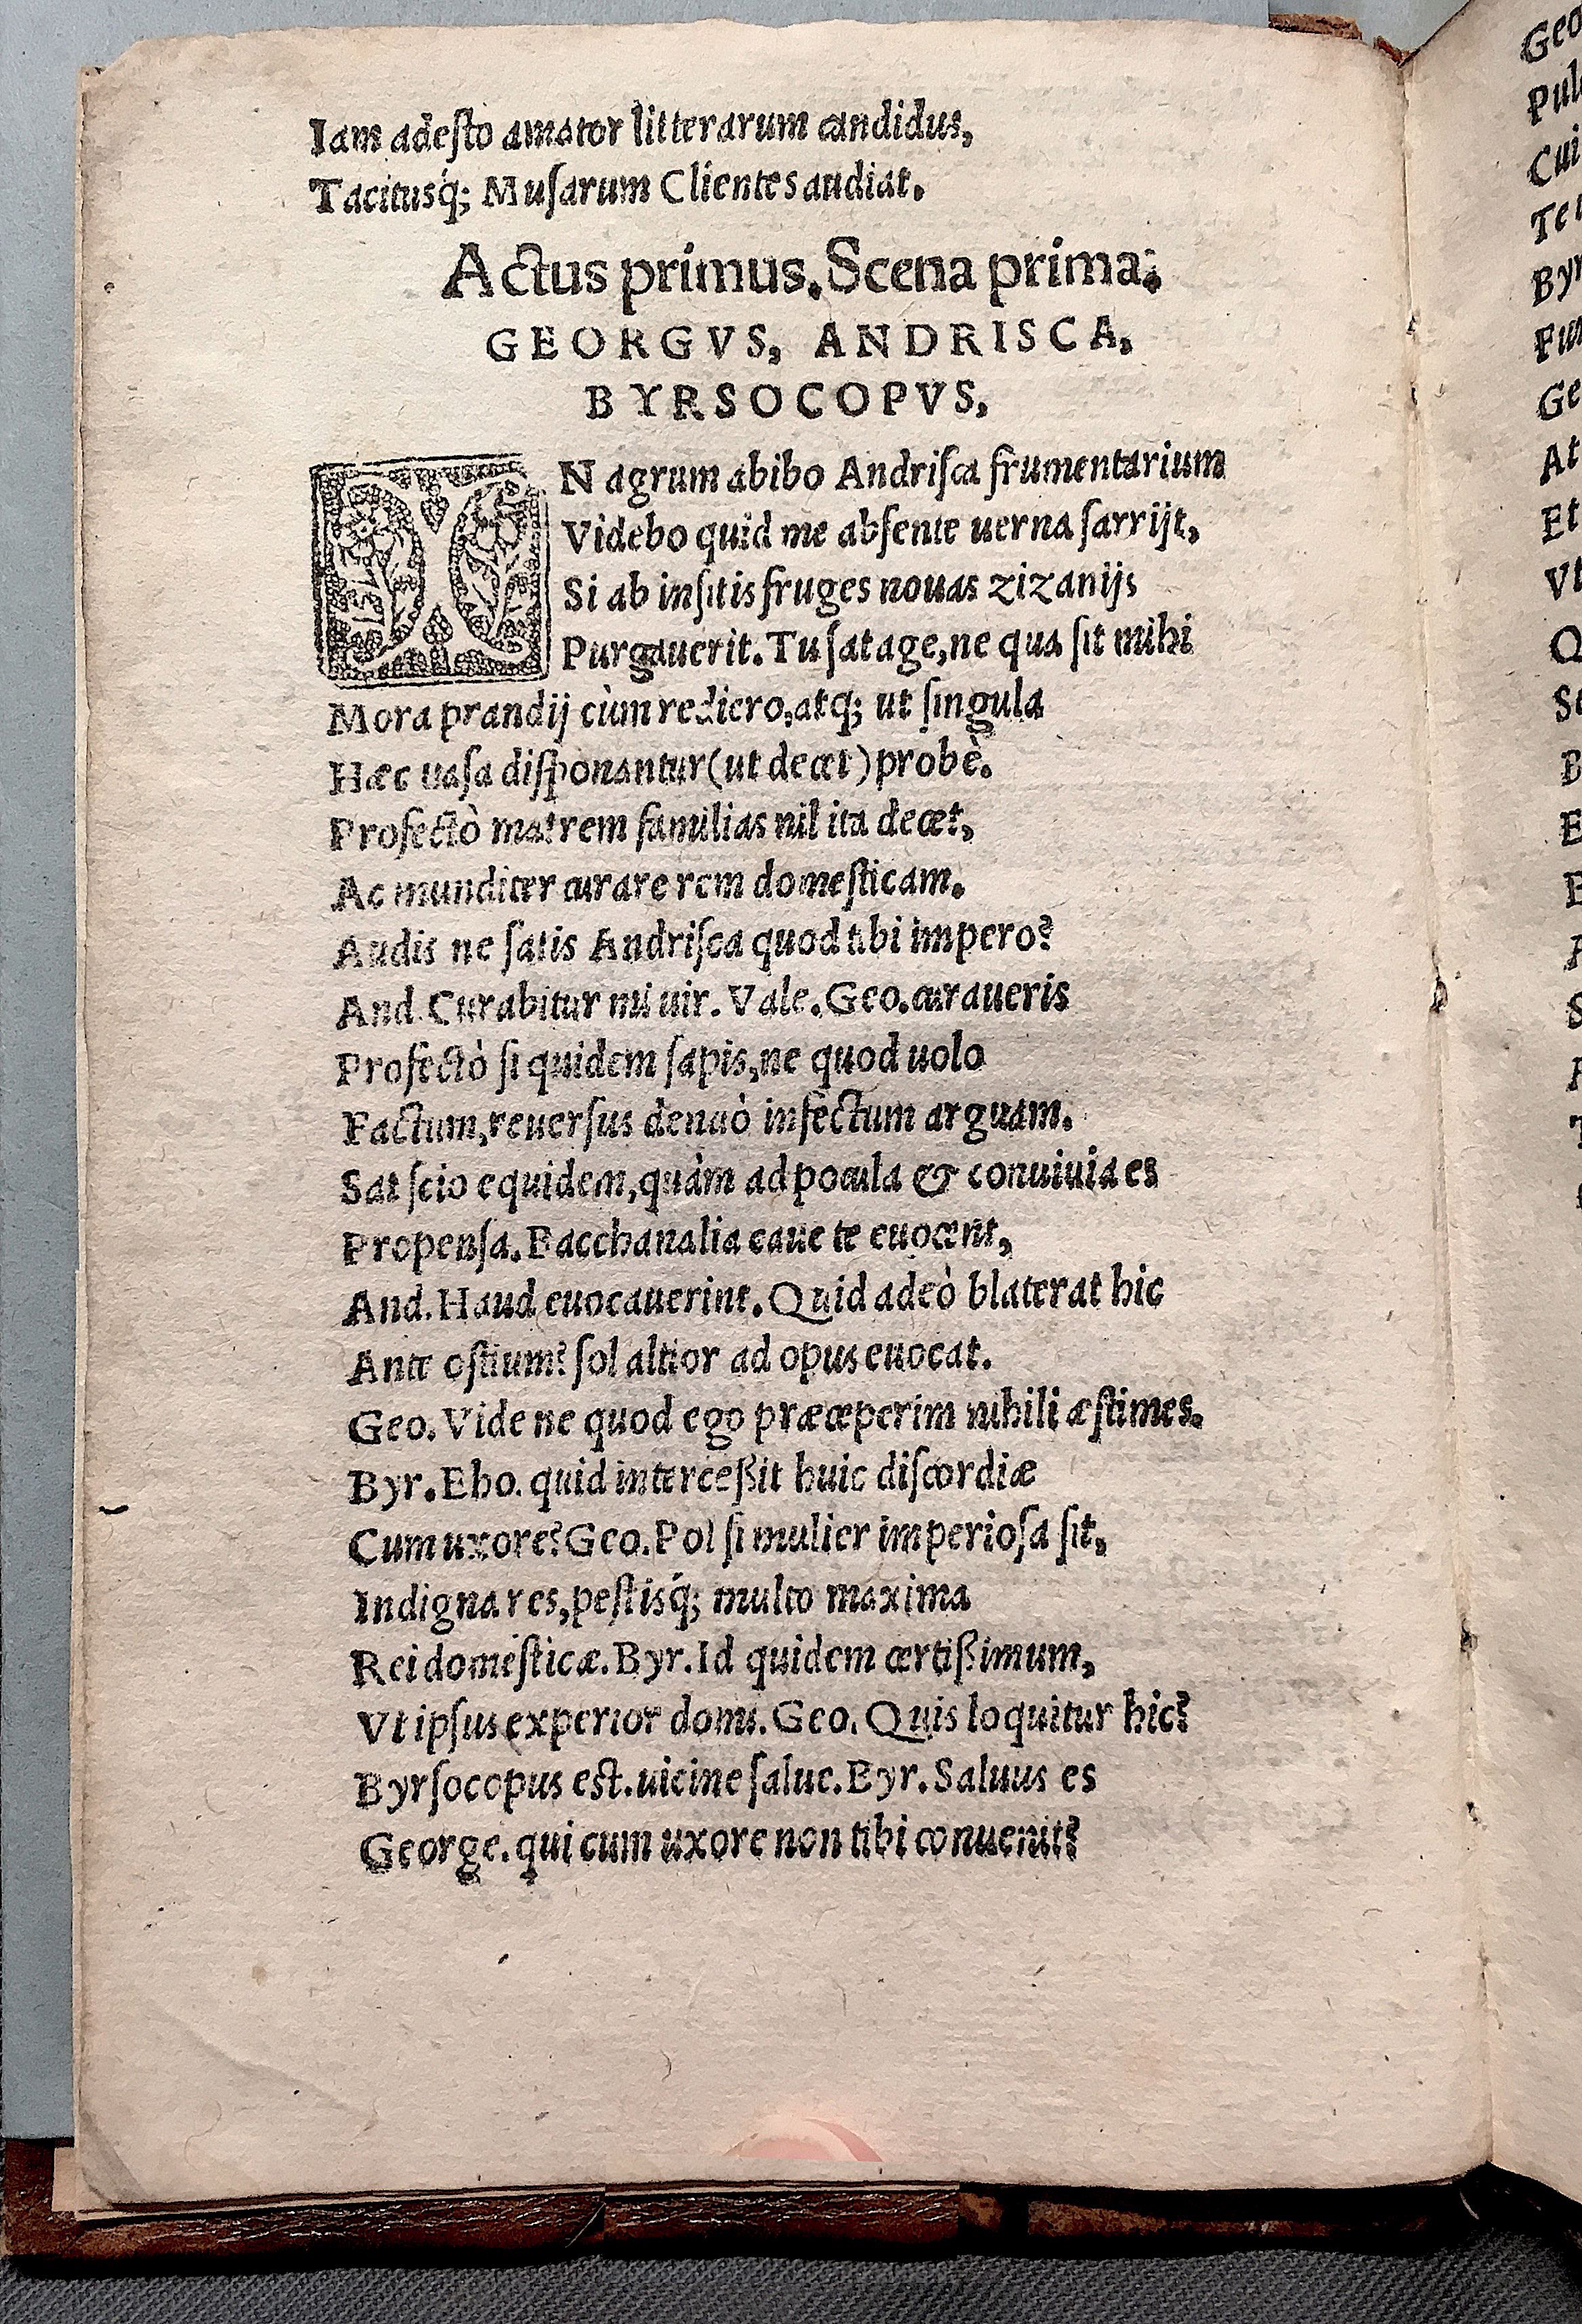 Iam adeſto amator litterarum candidus,
Tacitusq́; Muſarum Clientes audiat.
Actus primus. Scena prima.
GEORGVS, ANDRISCA,
BYRSOCOPVS,
IN agrum abibo Andriſca frumentarium
Videbo quid me abſente uerna ſarrijt,
Si ab inſitis fruges nouas zizanijs
Purgauerit. Tu ſatage, ne qua ſit mihi
Mora prandij cùm rediero, atq; ut ſingula
Hæc uaſa diſponantur (ut decet) probè.
Profectò matrem familias nil ita decet,
Ac munditer curare rem domeſticam.
Audis ne ſatis Andriſca quod tibi impero?
And. Curabitur mi uir. Vale. Geo. curaueris
Profectò ſi quidem ſapis, ne quod uolo
Factum, reuerſus denuò infectum arguam.
Sat ſcio equidem, quàm ad pocula & conuiuia es
Propenſa. Bacchanalia caue te euocent,
And. Haud euocauerint. Quid adeò blaterat hic
Ante oſtium? ſol altior ad opus euocat.
Geo. Vide ne quod ego præceperim nihili æſtimes.
Byr. Eho. quid interceßit huic diſcordiæ
Cum uxore? Geo. Pol ſi mulier imperioſa ſit,
Indigna res, peſtisq́; multo maxima
Rei domeſticæ. Byr. Id quidem certißimum,
Vt ipſus experior domi. Geo. Quis loquitur hic?
Byrſocopus est. uicine ſalue. Byr. Saluus es
George. qui cum uxore non tibi conuenit?
Geo
Pul
Cui
Te
Byr
Fun
Ge
At
Et
Vt
Q
B
E